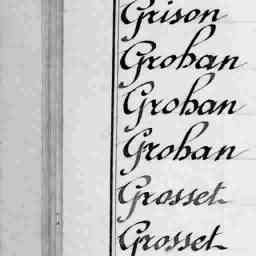 Grison
Grohan
Grohan
Grohan
Grosset
Grosset